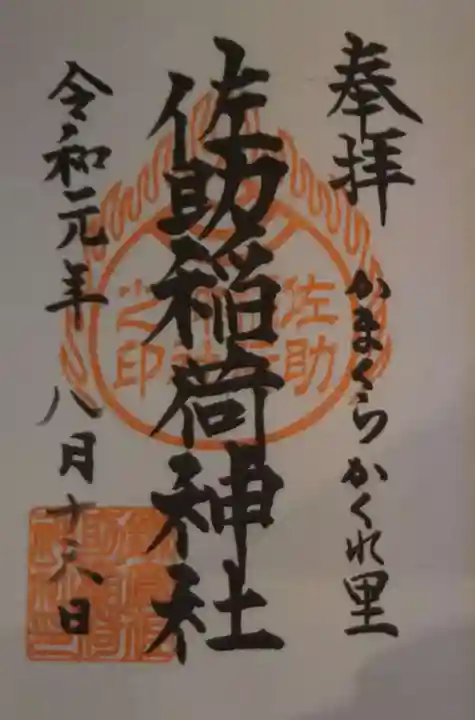 奉拝
かまくらかくれ里
佐助稲荷神社
令和元年 八月十六日
佐助
之印